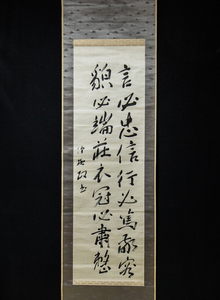 言必忠信行必篤敬容
貌必端莊衣冠必肅整